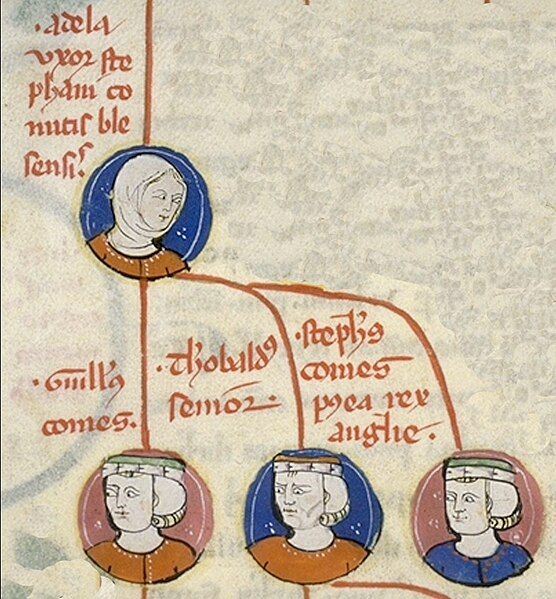 ·adela
vxor ste
phani co
mitis ble
sensis.
·Guill's
comes.
·thobald's
senior.
·steph's
comes
p'ea rex
anglie.